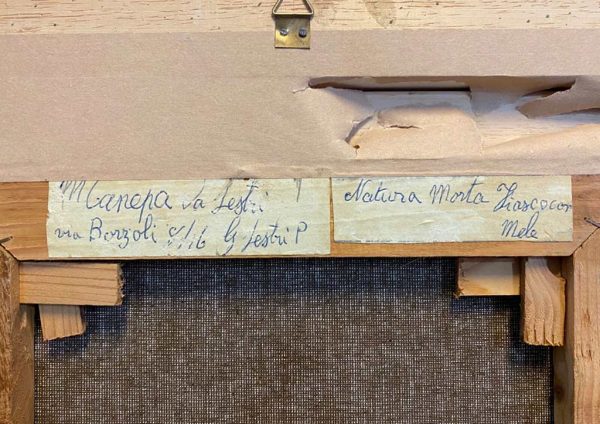 M Canepa Da Sestri
via Borzoli 8/16 G Sestri P
Natura Morta Fiasco con
Mele